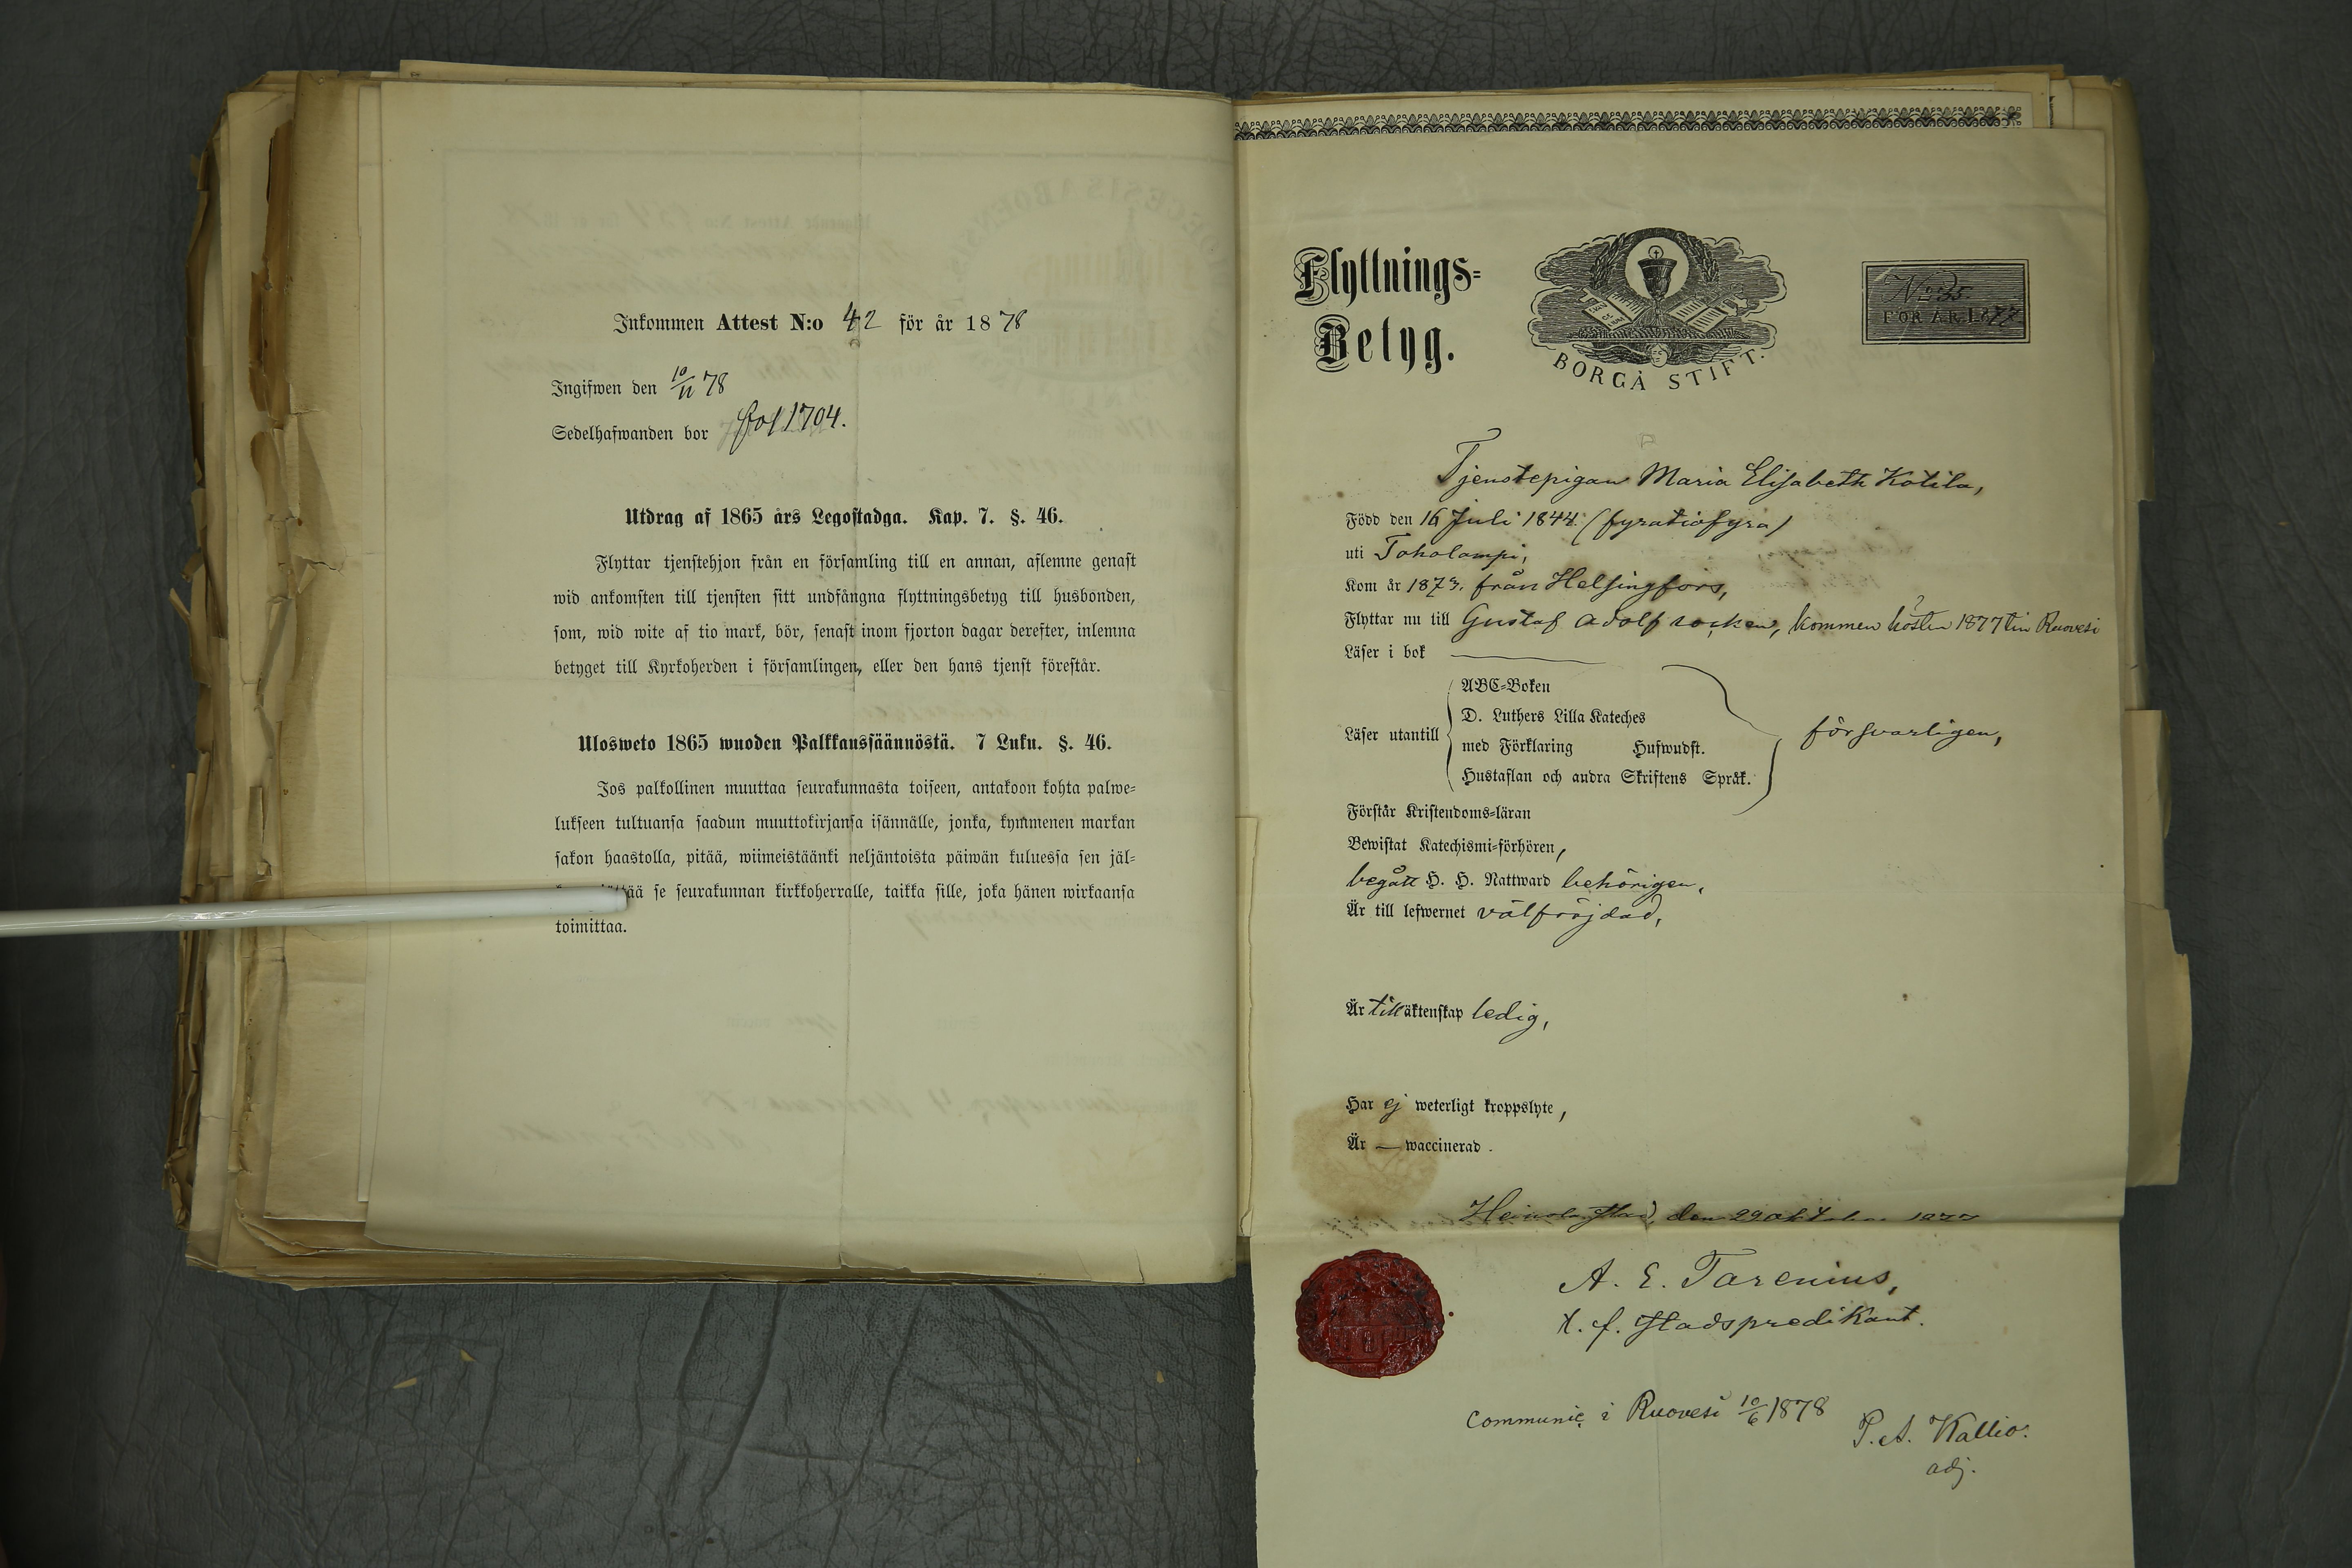 Inkommen Attest N:o 42 för år 1878
Ingifwen den 10/11 78
Sedelhafwanden bor fol 1704.
Utdrag af 1865 års Legostadga. Kap. 7. §. 46.
Flyttar tjenstehjon från en församling till en annan, aflemne genast
wid ankomsten till tjensten sitt undfångna flyttningsbetyg till husbonden,
som, wid wite af tio mark, bör, senast inom fjorton dagar derefter, inlemna
betyget till Kyrkoherden i församlingen, eller den hans tjenst förestår.
Ulosweto 1865 wuoden Palkkaussäännöstä. 7 Luku. §. 46.
Jos palkollinen muuttaa seurakunnasta toiseen, antakoon kohta palwe=
lukseen tultuansa saadun muuttokirjansa isännälle, jonka, kymmenen markan
sakon haastolla, pitää, wiimeistäänki neljäntoista päiwän kuluessa sen jäl=
se seurakunnan kirkkoherralle, taikka sille, joka hänen wirkaansa
toimittaa.
Flyttnings=
Betyg.
BORGÅ STIFT.
No 35.
FÖR ÅR 1877
Tjenstepigan Maria Elisabeth Kotila,
Född den 16 Juli 1844. (fyratiofyra)
uti Toholampi,
Kom år 1873. från Helsingfors,
Flyttar nu till Gustaf Adolf socken, kommen hösten 1877 till Ruovesi
Läser i bok
Läser utantill
ABC=Boken
D. Luthers Lilla Kateches
med Förklaring Hufwudst.
Hustaflan och andra Skriftens Språk.
försvarligen,
Förstår Kristendoms=läran
Bewistat Katechismi=förhören,
begått H. H. Nattward behörigen,
Är till lefwernet välfräjdad,
Är till äktenskap ledig,
Har ej weterligt kroppslyte,
Är — waccinerad.
Heinola stad, den 29 oktober 1877
A. E. Tarenius,
t. f. Stadspredikant.
Communic. i Ruovesi 10/6 1878
P. A. Kallio.
adj.